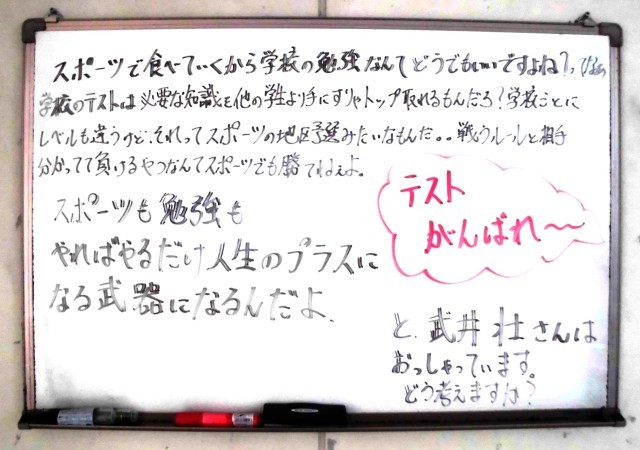 スポーツで食べていくから学校の勉強なんてどうでもいいですよね?ってなぁ
学校のテストは必要な知識を他の学生より手にすりゃトップ取れるもんだろ?学校ごとに
レベルも違うけど、それってスポーツの地区予選みたいなもんだ。。戦うルールと相手
分かってて負けるやつなんてスポーツでも勝てねぇよ。
スポーツも勉強も
やればやるだけ人生のプラスに
なる武器になるんだよ.
テスト
がんばれ〜〜
と、武井壮さんは
おっしゃっています。
どう考えますか?